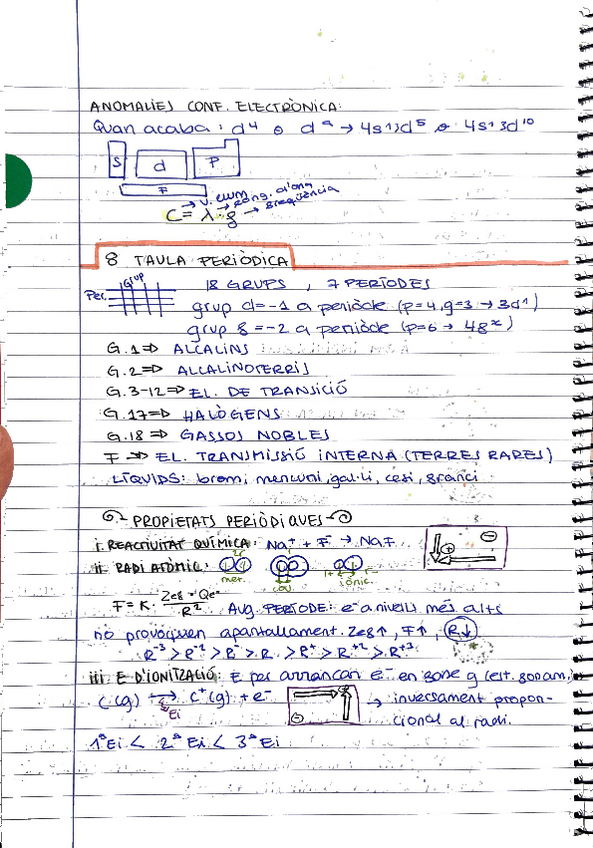 ANOMALIES CONF. ELECTRÒNICA:
Quan acaba: d⁴ o d⁹ → 4s¹3d⁵ o 4s¹3d¹⁰
S d P
F
→ v. llum
→ long. d'ona
C = λ · f → freqüència
8 TAULA PERIÒDICA
Grup
Per. 18 GRUPS, 7 PERÍODES
grup d = -1 a període (p=4, g=3 → 3d¹)
grup f = -2 a període (p=6 → 4fˣ)
G.1 ⇒ ALCALINS
G.2 ⇒ ALCALINOTERRIS
G.3-12 ⇒ EL. DE TRANSICIÓ
G.17 ⇒ HALÒGENS
G.18 ⇒ GASSOS NOBLES
F ⇒ EL. TRANSMISSIÓ INTERNA (TERRES RARES)
LÍQUIDS: brom, mercuri, gal·li, cesi, franci
PROPIETATS PERIÒDIQUES
i. REACTIVITAT QUÍMICA: Na⁺ + F⁻ → NaF
ii. RADI ATÒMIC: 2r
met. cov. r+ r- iònic.
F = K · Zef · Qe⁻ / R² Aug. PERÍODE: e⁻ a nivells més alts
no provoquen apantallament. Zef↑, F↑, R↓
R⁻³ > R⁻² > R⁻ > R > R⁺ > R⁺² > R⁺³
iii. E D'IONITZACIÓ: E per arrancar e⁻ en gone g (est. fonam.)
C(g) → C⁺(g) + e⁻ → inversament propor-
Ei
cional al radi.
1ª Ei < 2ª Ei < 3ª Ei